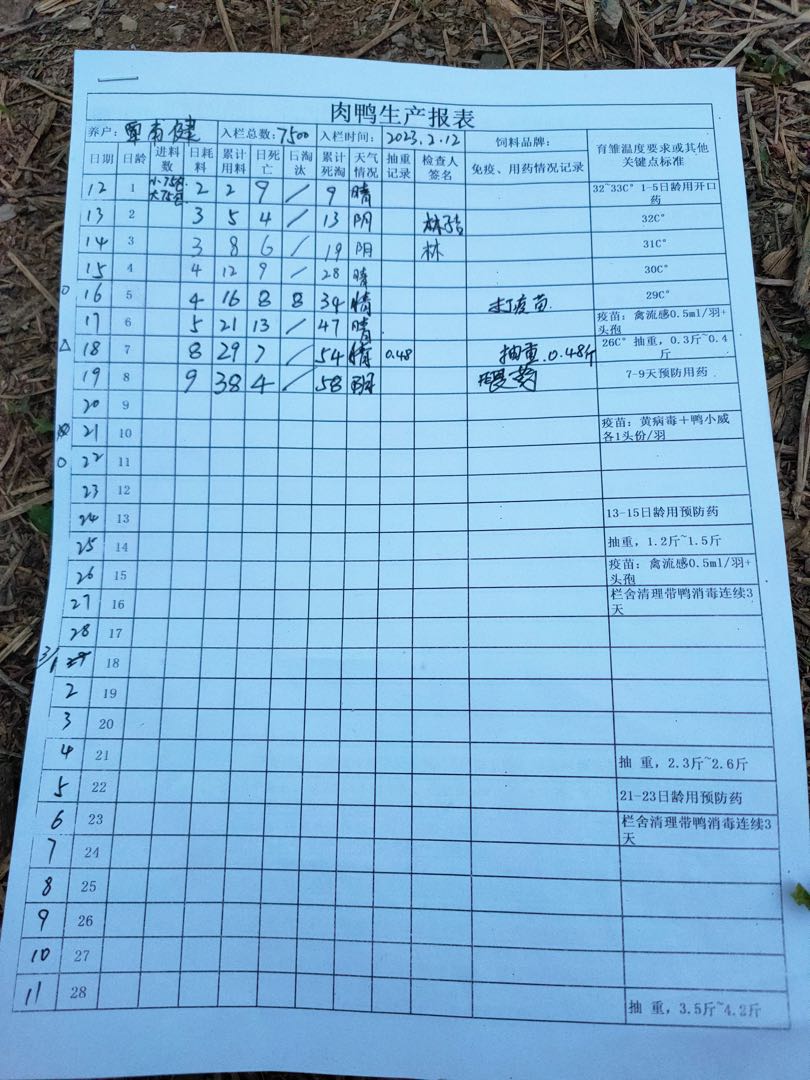 肉鸭生产报表
养户: 覃有健 入栏总数: 7500 入栏时间: 2023.2.12 饲料品牌: 育雏温度要求或其他关键点标准
日期 日龄 进料数 日耗料 累计用料 日死亡 日淘汰 累计死淘 天气情况 抽重记录 检查人签名 免疫、用药情况记录
12 1 2 2 9 / 9 晴 32~33C° 1-5日龄用开口药
13 2 3 5 4 / 13 阴 32C°
14 3 3 8 6 / 19 阴 林 31C°
15 4 4 12 9 / 28 晴 30C°
16 5 4 16 8 8 34 晴 打疫苗 29C°
17 6 5 21 13 / 47 晴 疫苗: 禽流感0.5ml/羽+头孢
△ 18 7 8 29 7 / 54 晴 0.48 抽重.0.48斤 26C° 抽重, 0.3斤~0.4斤
19 8 9 38 4 / 58 阴 喂药 7-9天预防用药
20 9
21 10 疫苗: 黄病毒+鸭小威各1头份/羽
22 11
23 12
24 13 13-15日龄用预防药
25 14 抽重, 1.2斤~1.5斤
26 15 疫苗: 禽流感0.5ml/羽+头孢
27 16 栏舍清理带鸭消毒连续3天
28 17
3/1 18
2 19
3 20
4 21 抽 重, 2.3斤~2.6斤
5 22 21-23日龄用预防药
6 23 栏舍清理带鸭消毒连续3天
7 24
8 25
9 26
10 27
11 28 抽 重, 3.5斤~4.2斤